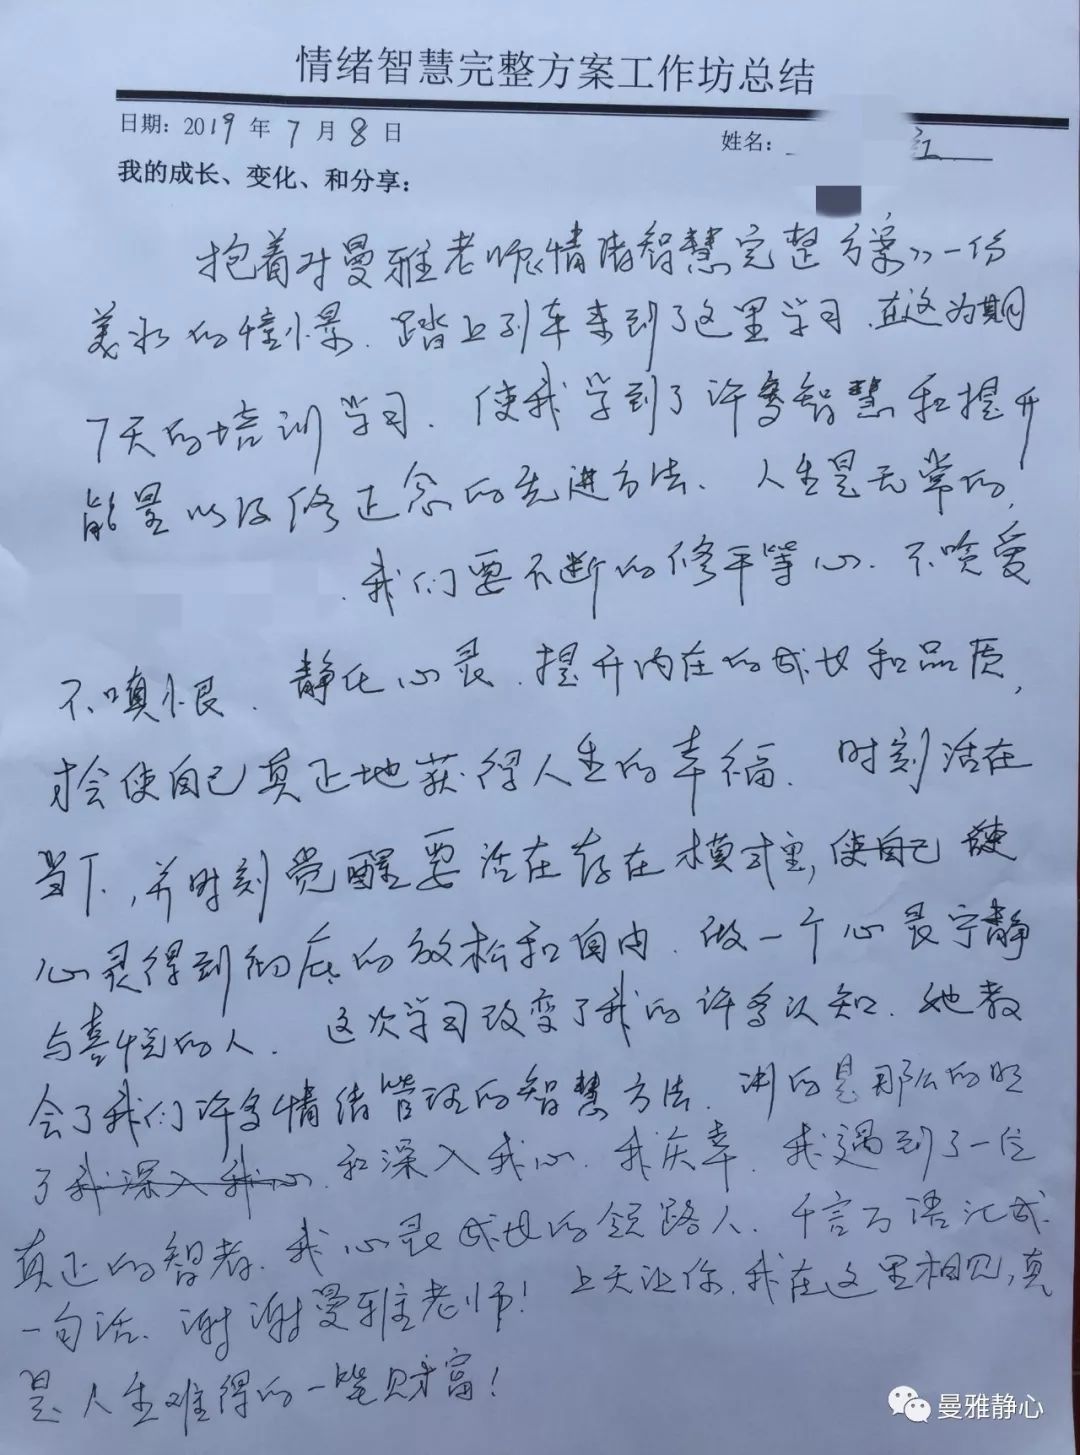 情绪智慧完整方案工作坊总结
日期: 2019 年 7 月 8 日
姓名: 红
我的成长、变化、和分享:
抱着对曼雅老师《情绪智慧完整方案》一份
美好的憧憬、踏上列车来到了这里学习、在这为期
7天的培训学习、使我学到了许多智慧和提升
能量以及修正念的先进方法、人生是无常的,
我们要不断的修平等心、不贪爱
不嗔恨、静化心灵、提升内在的成长和品质,
才会使自己真正地获得人生的幸福、时刻活在
当下,并时刻觉醒要活在存在模式里,使自己
心灵得到彻底的放松和自由、做一个心灵宁静
与喜悦的人、这次学习改变了我的许多认知、她教
会了我们许多情绪管理的智慧方法、讲的是那么的明
了我深入我心、和深入我心、我庆幸、我遇到了一位
真正的智者、我心灵成长的领路人、千言万语汇成
一句话、谢谢曼雅老师!上天让你、我在这里相见,真
是人生难得的一笔财富!
曼雅静心